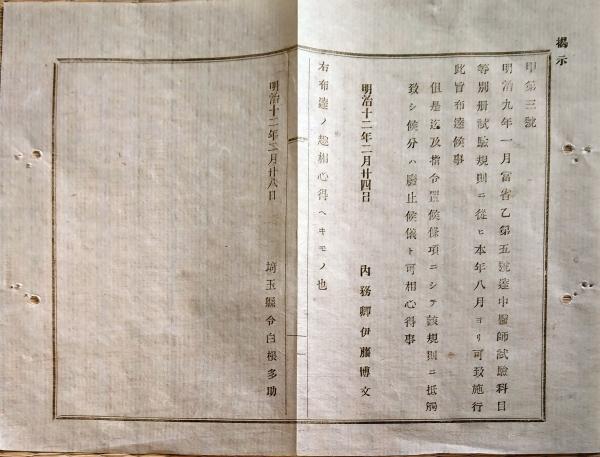 揭示
甲第三號
明治九年一月當省乙第五號達中醫師試驗科目
等別册試驗規則ニ從ヒ本年八月ヨリ可致施行
此旨布達候事
但是迄及指令置候條項ニシテ該規則ニ抵觸
致シ候分ハ廢止候儀ト可相心得事
明治十二年二月廿四日
內務卿伊藤博文
右布達ノ趣相心得ヘキモノ也
明治十二年二月廿八日
埼玉縣令白根多助